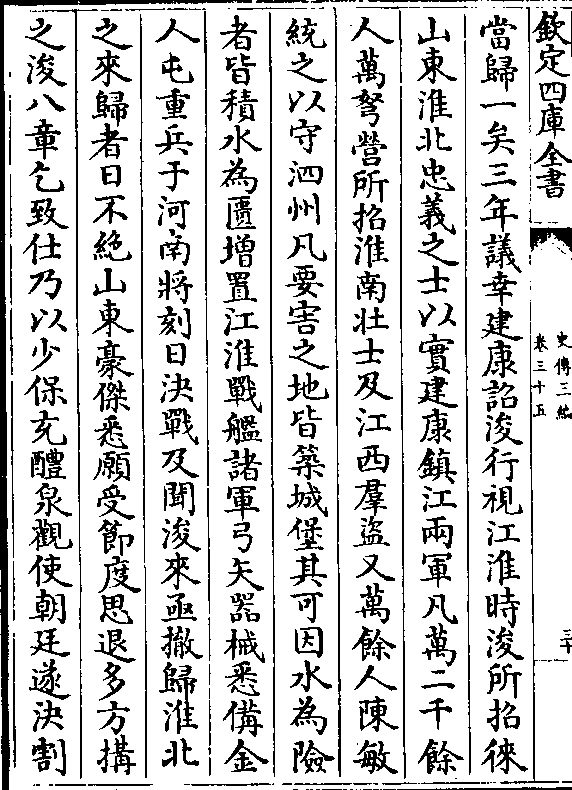 欽定四庫全書
史傳三編
卷三十五
三十
當歸一矣三年議幸建康詔浚行視江淮時浚所招徠
山東淮北忠義之士以實建康鎮江兩軍凡萬二千餘
人萬弩營所招淮南壯士及江西羣盜又萬餘人陳敏
統之以守泗州凡要害之地皆築城堡其可因水為險
者皆積水為匱增置江淮戰艦諸軍弓矢器械悉備金
人屯重兵于河南將刻日決戰及聞浚來亟撤歸淮北
之來歸者日不絶山東豪傑悉願受節度思退多方搆
之浚八章乞致仕乃以少保充醴泉觀使朝廷遂決割